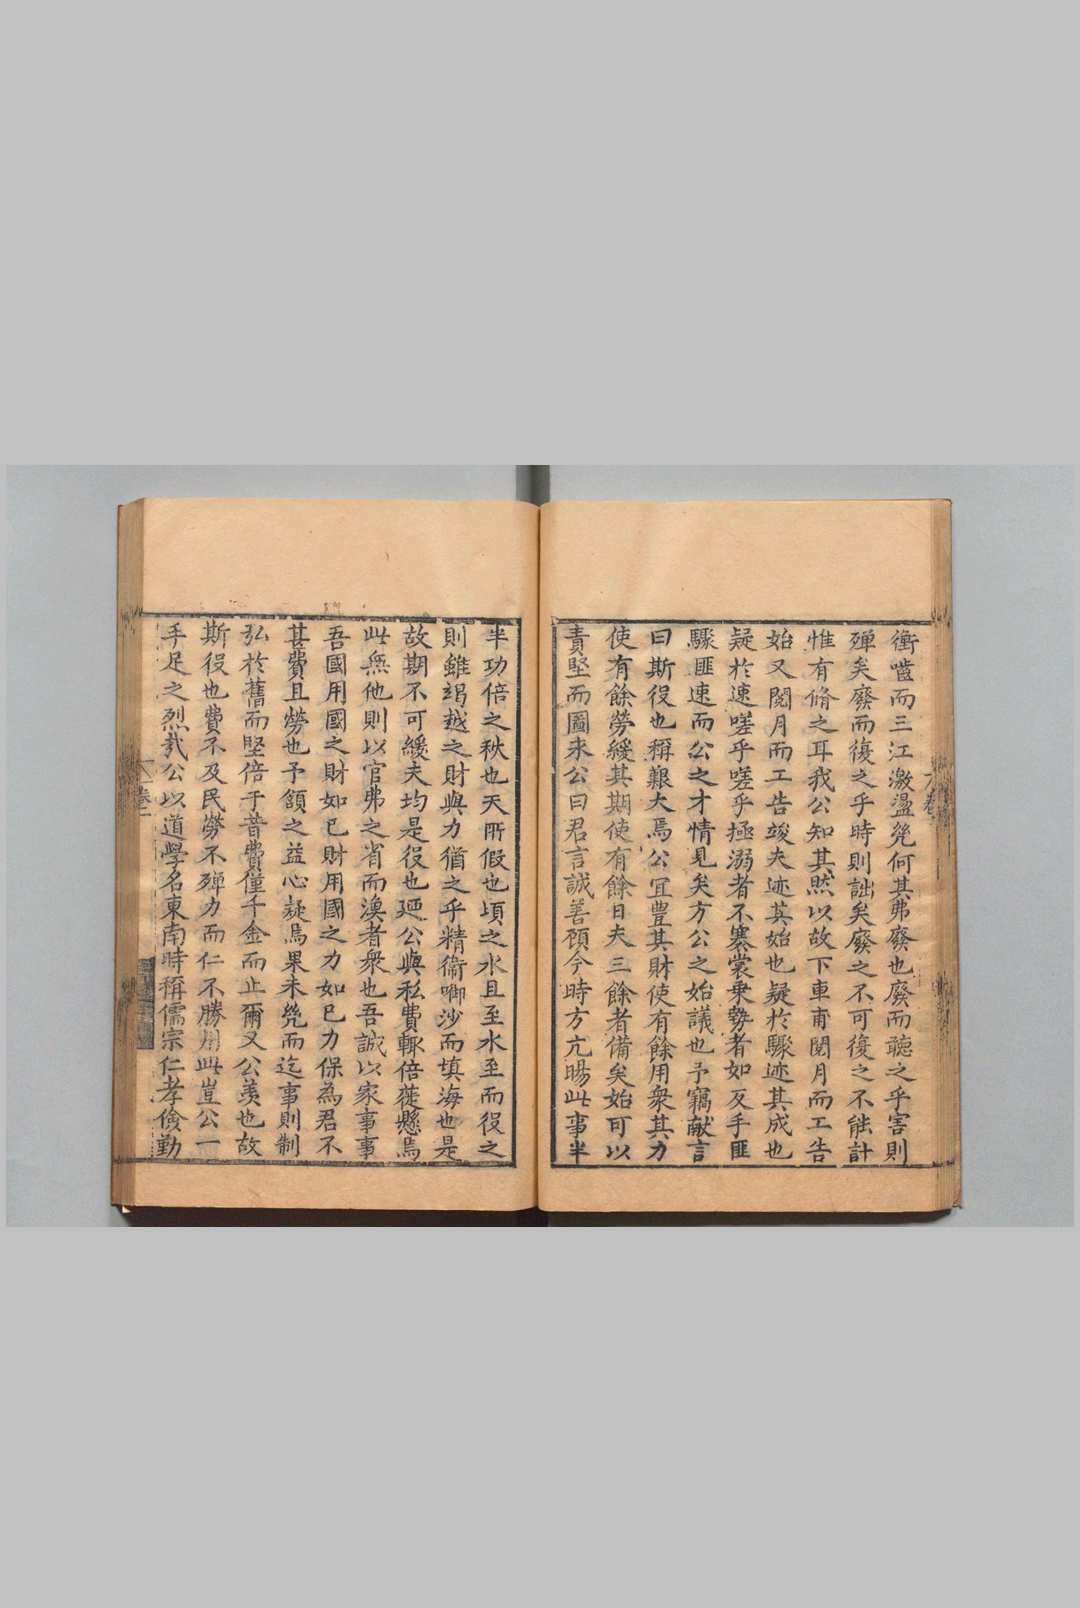 衝嚙而三江激盪幾何其弗廢也廢而聽之乎害則
殫矣廢而復之乎時則詘矣廢之不可復之不能計
惟有脩之耳我公知其然以故下車甫閱月而工告
始又閱月而工告竣夫迹其始也疑於驟迹其成也
疑於速嗟乎嗟乎拯溺者不褰裳乗勢者如反手匪
驟匪速而公之才情見矣方公之始議也予竊献言
曰斯役也稱艱大焉公宜豊其財使有餘用衆其力
使有餘勞緩其期使有餘日夫三餘者備矣始可以
責堅而圖永公曰君言誠善顧今時方亢暘此事半
半功倍之秋也天所假也頃之水且至水至而役之
則雖竭越之財與力猶之乎精衞啣沙而填海也是
故期不可緩夫均是役也廼公與私費輙倍蓰懸焉
此無他則以官弗之省而漁者衆也吾誠以家事事
吾國用國之財如已財用國之力如已力保為君不
甚費且勞也予頷之益心疑焉果未幾而迄事則制
弘於舊而堅倍于昔費僅千金而止爾又公羨也故
斯役也費不及民勞不殫力而仁不勝用此豈公一
手足之烈哉公以道學名東南時稱儒宗仁孝儉勤
卷一